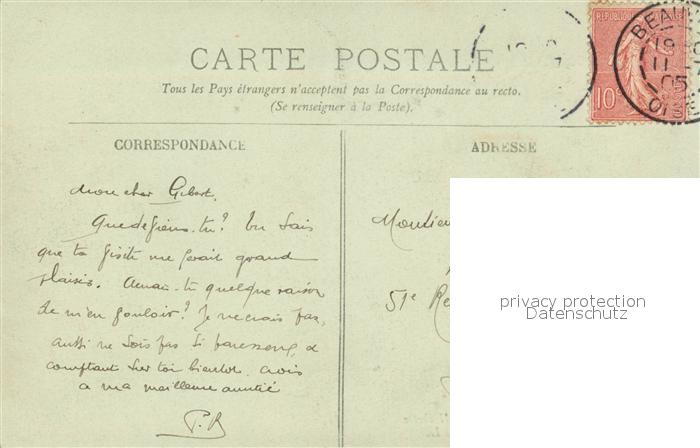 CARTE POSTALE
Tous les Pays étrangers n'acceptent pas la Correspondance au recto.
(Se renseigner à la Poste).
CORRESPONDANCE
ADRESSE
RÉPUBLIQUE
10
BEAUV
19
11
05
OISE
Mon cher Gilbert,
Que deviens-tu? Tu sais
que ta visite me ferait grand
plaisir. Aurais-tu quelque raison
de m'en vouloir? Je ne crois pas,
aussi ne sois pas si paresseux, &
comptant sur toi bientôt, crois
à ma meilleure amitié
P.R
Monsieur
51e Re
privacy protection
Datenschutz